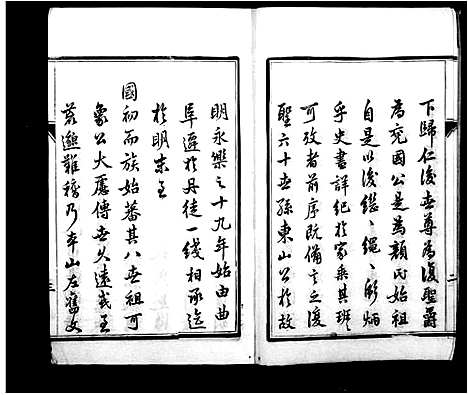 下歸仁後世尊為復聖爵
為兗國公是為顏氏始祖
自是以後繼〻繩〻彪炳
乎史書詳紀於家乘其班
可攷者前序既備言之復
聖六十世孫東山公於故
二
明永樂之十九年始由曲
阜遷於丹徒一綫相承迄
於明末至
國初而族始蕃其八世祖可
象公大厯傳世久遠或至
荒邈難稽乃本山左舊文
三